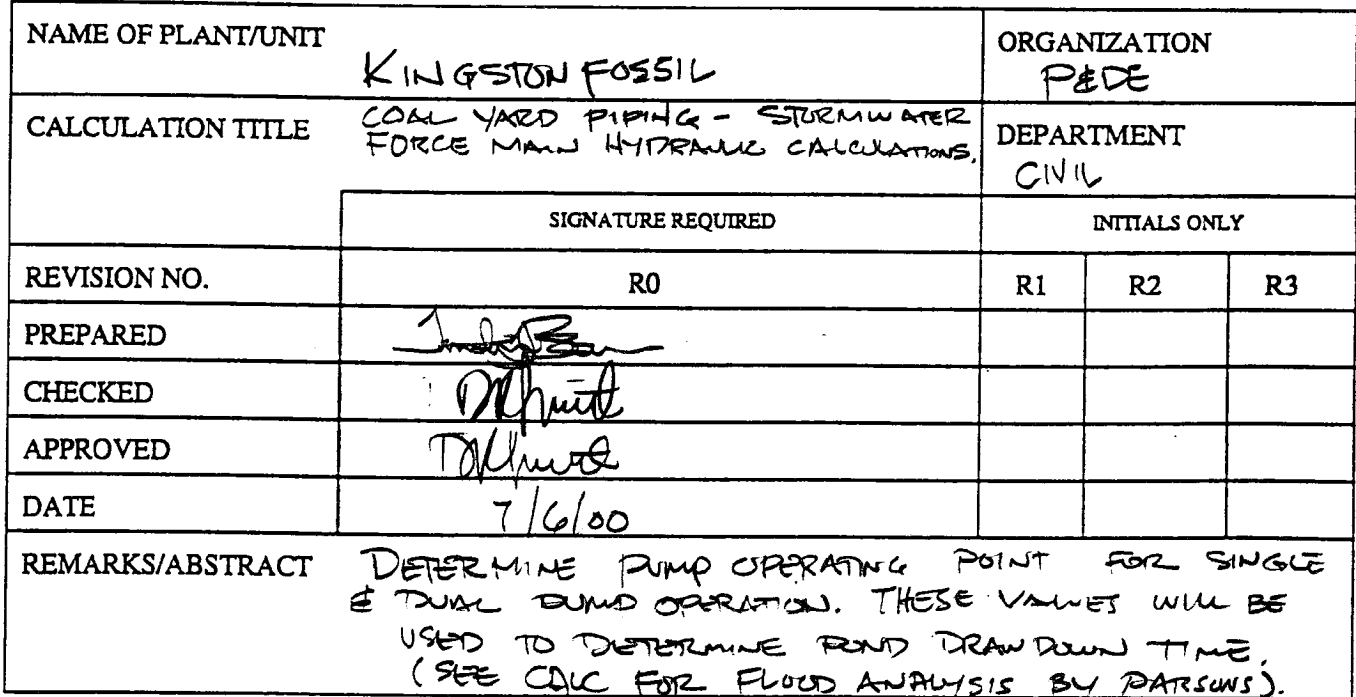 NAME OF PLANT/UNIT
KINGSTON FOSSIL
ORGANIZATION
P&DE
CALCULATION TITLE
COAL YARD PIPING - STORMWATER
FORCE MAIN HYDRAULIC CALCULATIONS.
DEPARTMENT
CIVIL
SIGNATURE REQUIRED
INITIALS ONLY
REVISION NO.
R0
R1
R2
R3
PREPARED
CHECKED
APPROVED
DATE
7/6/00
REMARKS/ABSTRACT
DETERMINE PUMP OPERATING POINT FOR SINGLE
& DUAL PUMP OPERATION. THESE VALUES WILL BE
USED TO DETERMINE POND DRAWDOWN TIME.
(SEE CALC FOR FLOOD ANALYSIS BY PARSONS).